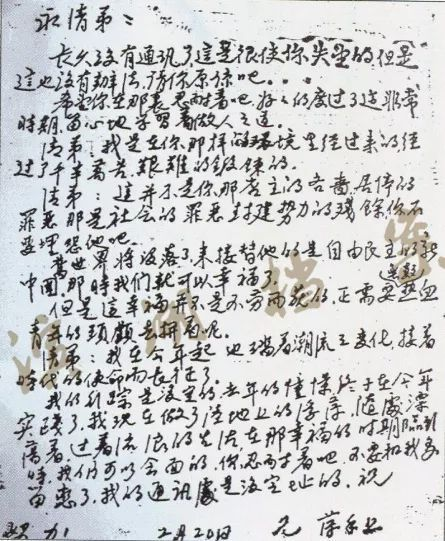 永清弟：
长久没有通讯了，这是很使你失望的，但是
這也没有辦法，請你原諒吧…
希望你在那裏忍耐着吧，好々的度过了这非常
時期，留心地学習着做人之道。
清弟：我是在你那样的环境里经过来的，经
过了千辛萬苦，艱難的鍛鍊的。
清弟：這并不是你那店主的吝嗇，居停的
罪惡，那是社会的罪惡，封建势力的殘餘，你不
要埋怨他吧。
舊世界将没落了，来接替他的是自由民主的新
中國，那時我们就可以幸福了。
但是這幸福并不是不劳而获的，正需要热血
青年的頭顱去拼命呢。
清弟：我在今年起也随着潮流之变化，接着
時代的使命而长征了。
我的行踪是没定的，去年的憧憬终于在今年
实踐了，我现在做了陸地上的浮萍，随處漂
蕩着，过着流浪的生活，在那幸福的时期临到
時，我们可以会面的，你忍耐着吧，不要和我多
留恋了，我的通訊處是没定址的。祝
努力
2月20日
兄